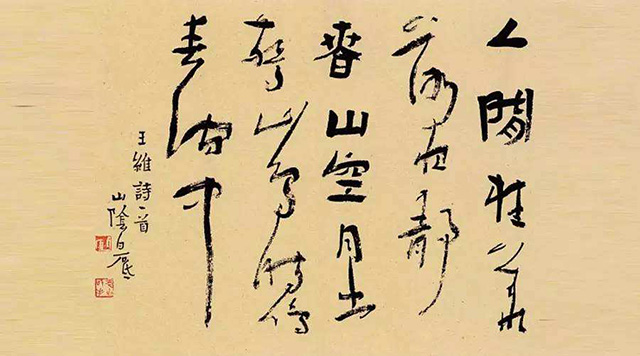 人閒桂花
落夜靜
春山空月出
驚山鳥時鳴
春澗中
王維詩一首
山陰白砥